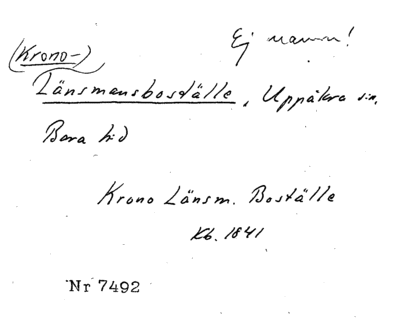 Ej namn!
(Krono-)
Länsmansboställe, Uppåkra sn,
Bara hd
Krono Länsm. Boställe
Kb. 1841
Nr 7492